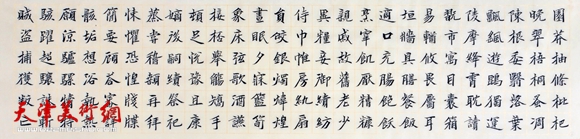 園莽抽條枇杷
晚翠梧桐早凋
陳根委翳落葉
飄颻遊鵾獨運
凌摩絳霄耽讀
翫市寓目囊箱
易輶攸畏屬耳
垣牆具膳飡飯
適口充腸飽飫
烹宰飢厭糟糠
親戚故舊老少
異糧妾御績紡
侍巾帷房紈扇
員潔銀燭煒煌
晝眠夕寐藍筍
象床弦歌酒讌
接杯舉觴矯手
頓足悅豫且康
嫡後嗣續祭祀
蒸嘗稽顙再拜
悚懼恐惶牋牒
簡要顧答審詳
骸垢想浴執熱
願涼驢騾犢特
駭躍超驤誅斬
賊盜捕獲叛亡
天津美术网